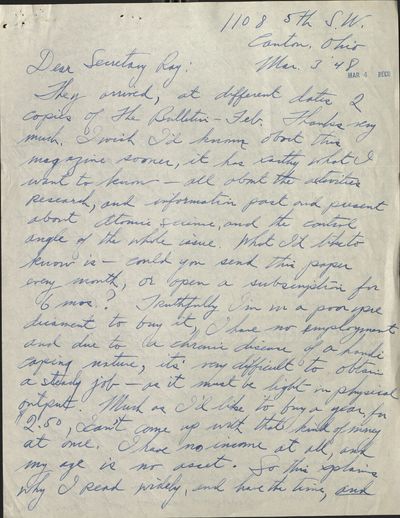 1108 5th S.W.
Canton, Ohio
Mar. 3 '48
MAR 4 RECD
Dear Secretary Ray:
They arrived, at different dates, 2
copies of The Bulletin - Feb. Thanks very
much. I wish I'd known about this
magazine sooner, it has exactly what I
want to know - all about the activities
research, and information past and present
about Atomic Science, and the control
angle of the whole issue. What I'd like to
know is - could you send this paper
every month, or open a subscription for
6 mos.? Truthfully I'm in a poor pre
dicament to buy it, I have no employment
and due to a chronic disease of a handi
caping nature, its very difficult to obtain
a steady job - as it must be light on physical
output. Much as I'd like to buy a year, for
2.50, I can't come up with that kind of money
at once. I have no income at all, and
my age is no asset. So this explains
why I read widely, and have the time, and